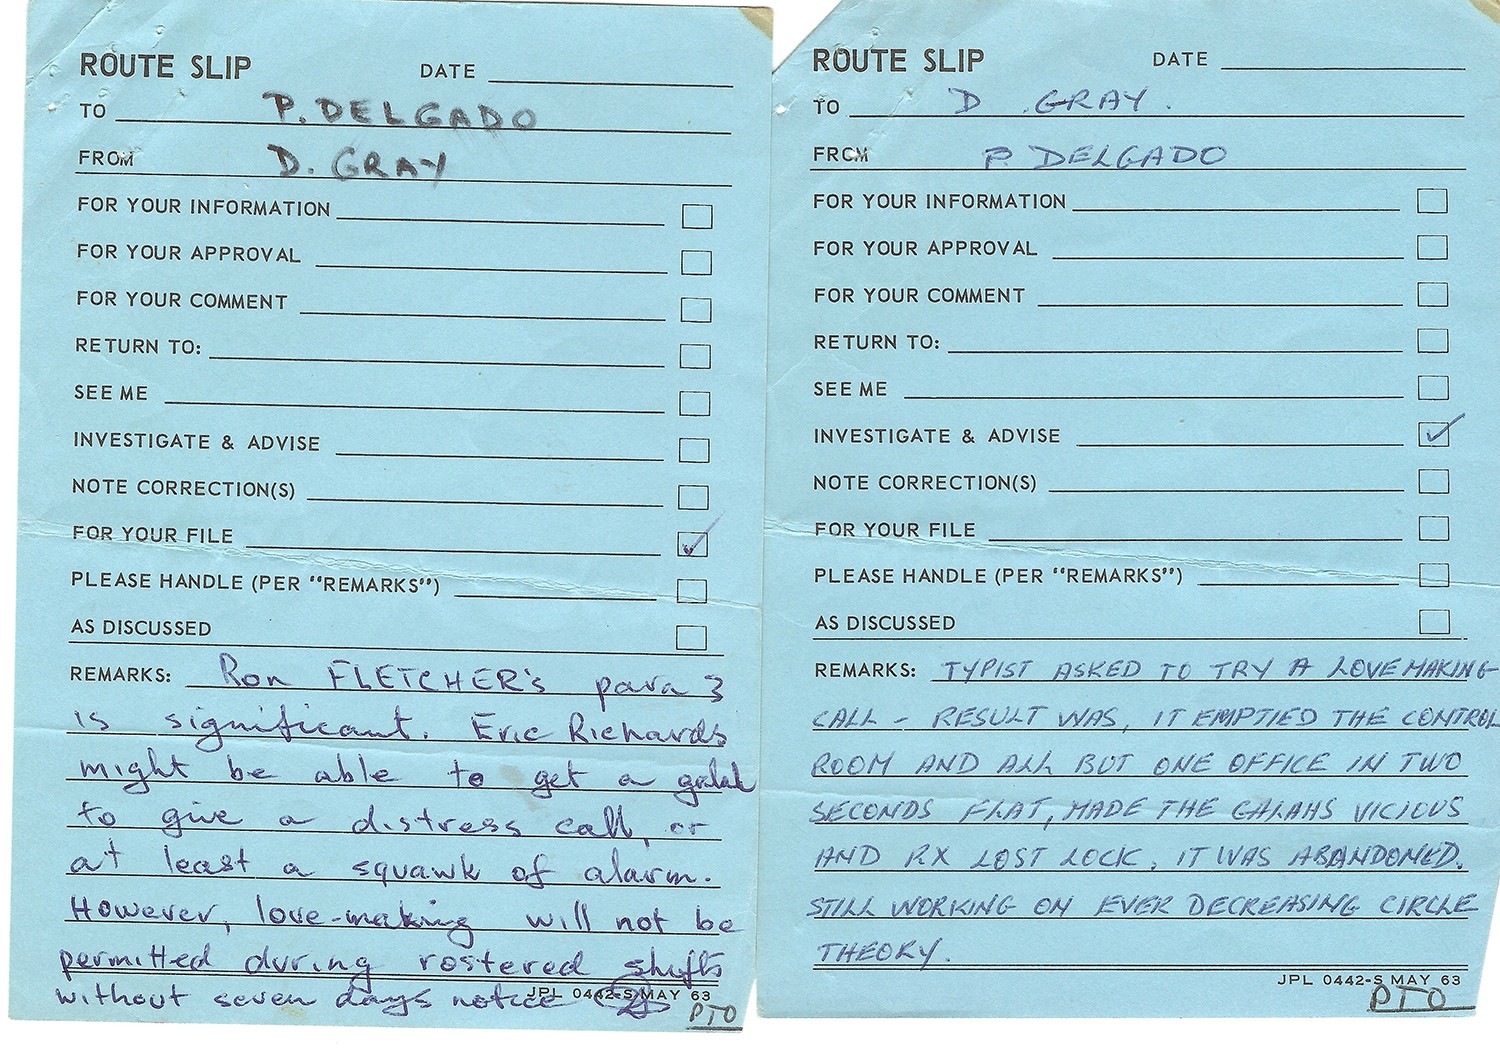 ROUTE SLIP DATE
TO P. DELGADO
FROM D. GRAY
FOR YOUR INFORMATION
FOR YOUR APPROVAL
FOR YOUR COMMENT
RETURN TO:
SEE ME
INVESTIGATE & ADVISE
NOTE CORRECTION(S)
FOR YOUR FILE ✓
PLEASE HANDLE (PER "REMARKS")
AS DISCUSSED
REMARKS: Ron FLETCHER's para 3
is significant. Eric Richards
might be able to get a galah
to give a distress call, or
at least a squawk of alarm.
However, love-making will not be
permitted during rostered shifts
without seven days notice
JPL 0442-S MAY 63
PTO
ROUTE SLIP DATE
TO D. GRAY.
FROM P. DELGADO
FOR YOUR INFORMATION
FOR YOUR APPROVAL
FOR YOUR COMMENT
RETURN TO:
SEE ME
INVESTIGATE & ADVISE ✓
NOTE CORRECTION(S)
FOR YOUR FILE
PLEASE HANDLE (PER "REMARKS")
AS DISCUSSED
REMARKS: TYPIST ASKED TO TRY A LOVEMAKING
CALL - RESULT WAS, IT EMPTIED THE CONTROL
ROOM AND ALL BUT ONE OFFICE IN TWO
SECONDS FLAT, MADE THE GALAHS VICIOUS
AND RX LOST LOCK. IT WAS ABANDONED.
STILL WORKING ON EVER DECREASING CIRCLE
THEORY.
JPL 0442-S MAY 63
PTO